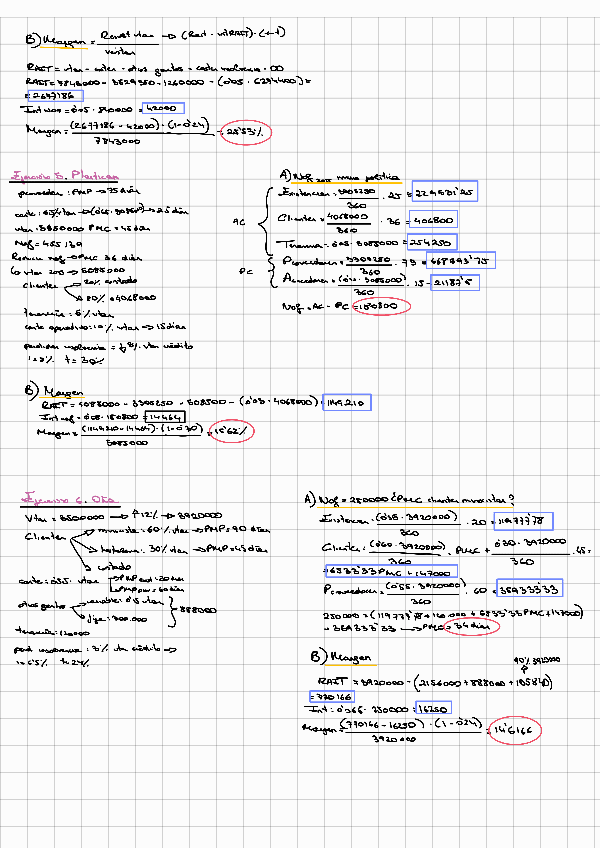 B) Margen = Result vtas → (Rait - intRAIT)·(1-t)
ventas
RAIT = vtas - costes - otros gastos - costes
RAIT = 7843000 - 3529350 - 1260000 - (0'05 · 6274400) =
= 2677186
Int NOF = 0'05 · 840000 = 42000
Margen = (2677186 - 42000)·(1-0'24) = 25'53%
7843000
Ejercicio 5. Plasticsa
proveedor: PMP → 75 días
vtas: 3850000 PMC = 45 días
Nof = 455139
Reduce nof → PMC 36 días
↳ vtas 2015 → 5085000
clientes → 20% contado
→ 80% = 4068000
tesorería = 5% vtas
coste operativo: 10% vtas → 15 días
vtas crédito
t = 30%
A) Nof 2015 nueva política
AC
Existencias = 3305250 · 25 = 229531'25
360
Clientes = 4068000 · 36 = 406800
360
Tesorería = 0'05 · 5085000 = 254250
PC
Proveedores = 3305250 · 75 = 688593'75
360
Acreedores = (0'10 · 5085000) · 15 = 21187'5
360
Nof = AC - PC = 180800
B) Margen
RAIT = 5085000 - 3305250 - 508500 - (0'03 · 4068000) = 1149210
Int nof = 0'08 · 180800 = 14464
Margen = (1149210 - 14464)·(1-0'30) = 15'62%
5085000
Ejercicio 6. Otis
Vtas = 3500000 → ↑12% → 3920000
Clientes → minorista: 60% vtas → PMP = 90 días
→ hoteleros: 30% vtas → PMP = 45 días
→ contado
coste: 0'55 · vtas → PMP = 20 días
→ PMP = 60 días
otros gastos → variable: 0'15 vtas
→ fijo: 300.000
} 888000
tesorería: 120000
3% vtas crédito →
i = 6'5% t = 24%
A) Nof = 250000 ¿PMC clientes minoristas?
Existencias: (0'55 · 3920000) · 20 = 119777'78
360
Clientes: (0'60 · 3920000) · PMC + 0'30 · 3920000 · 45 =
360 360
= 6533'33 PMC + 147000
Proveedores = (0'55 · 3920000) · 60 = 359333'33
360
250000 = (119777'78 + 120.000 + 6533'33 PMC + 147000)
- 359333'33 → PMC = 34 días
B) Margen
90% 3920000
RAIT = 3920000 - (2156000 + 888000 + 105840)
= 770166
Int: 0'065 · 250000 = 16250
Margen = (770166 - 16250) · (1 - 0'24) = 14'6166
3920000